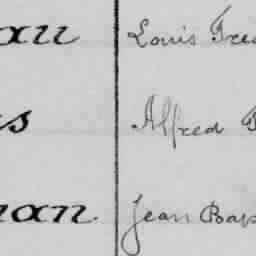 au Louis Fred
s Alfred
nan. Jean Bap